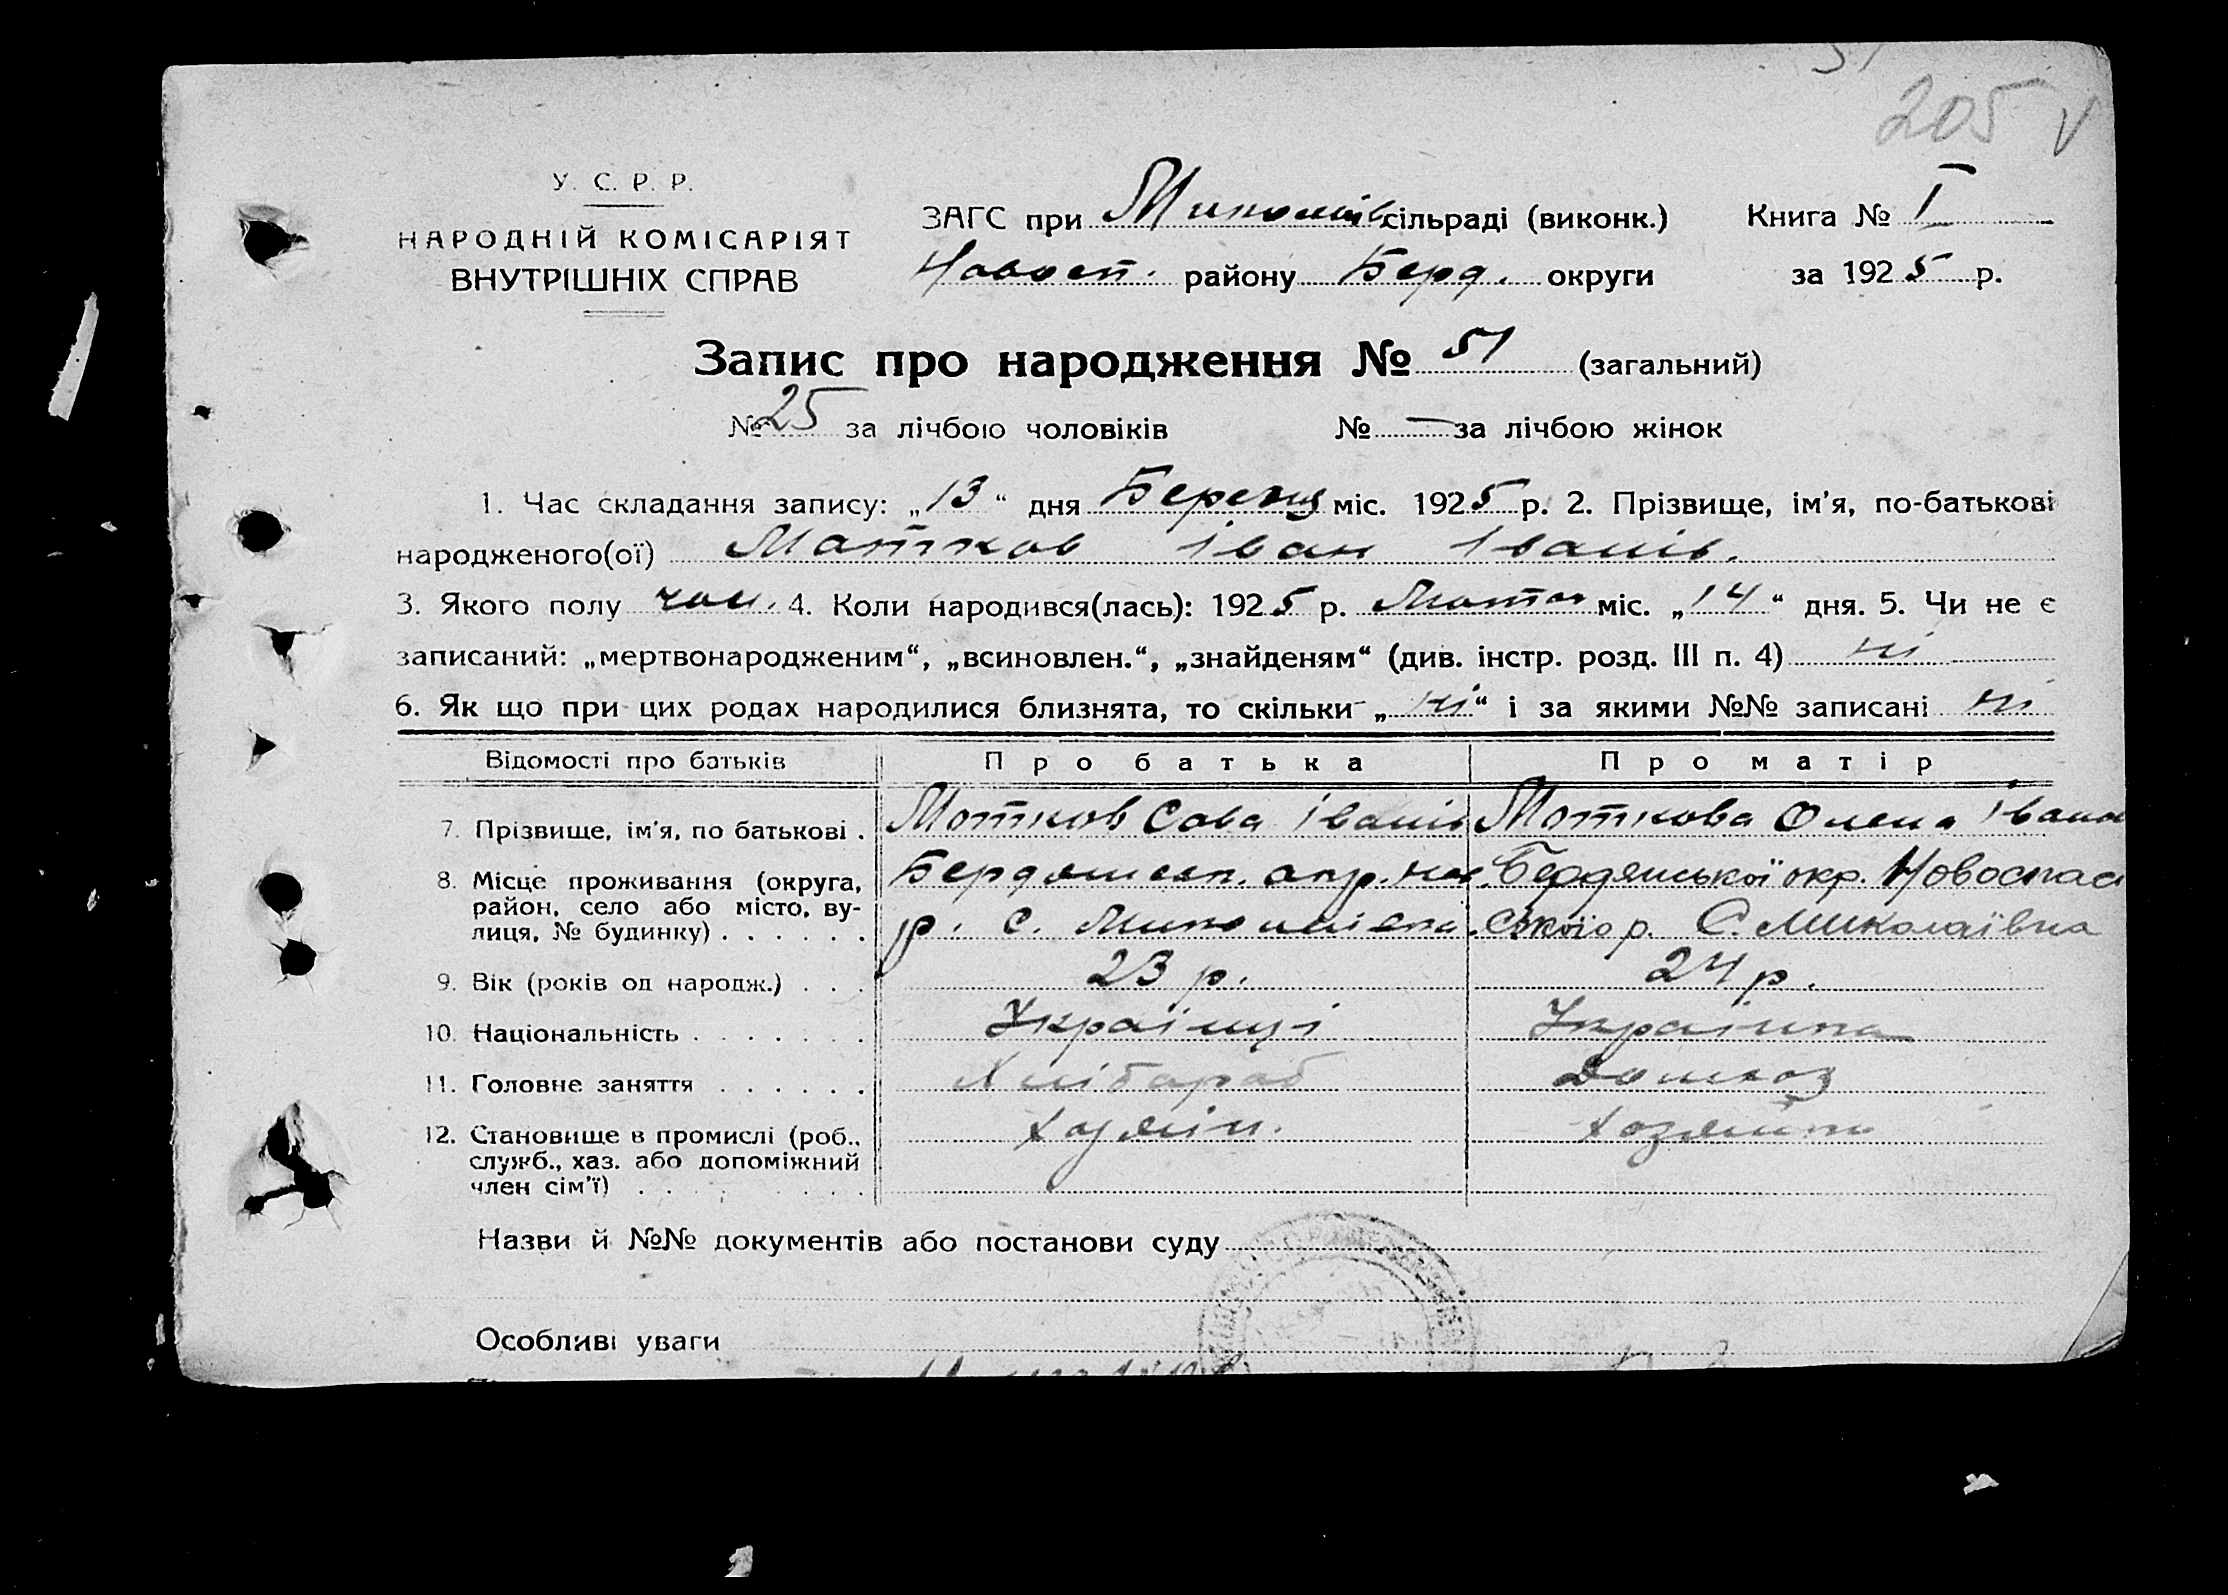 51
205 V
У. С. Р. Р.
НАРОДНІЙ КОМІСАРІЯТ
ВНУТРІШНІХ СПРАВ
ЗАГС при Миколаїв сільраді (виконк.) Книга № I
Новосп. району Берд. округи за 1925 р.
Запис про народження № 51 (загальний)
№ 25 за лічбою чоловіків № — за лічбою жінок
1. Час складання запису: „13“ дня Березня міс. 1925 р. 2. Прізвище, ім'я, по-батькові
народженого(ої) Мотков Іван Іванів.
3. Якого полу чол. 4. Коли народився(лась): 1925 р. Лютого міс. „14“ дня. 5. Чи не є
записаний: „мертвонародженим“, „всиновлен.“, „знайденям“ (див. інстр. розд. III п. 4) ні
6. Як що при цих родах народилися близнята, то скільки „ні“ і за якими №№ записані ні
Відомості про батьків Про батька Про матір
7. Прізвище, ім'я, по батькові . Мотков Сава Іванів Моткова Олена Івано
8. Місце проживання (округа, район, село або місто, вулиця, № будинку) . . . . . . Бердянськ. окр. Нов.
р. с. Миколаївка. Бердянської окр. Новоспас
ської р. С. Миколаївка
9. Вік (років од народж.) . . . 23 р. 24 р.
10. Національність . . . . . . . Українці Українка
11. Головне заняття . . . . . . Хлібороб Домхоз
12. Становище в промислі (роб., служб., хаз. або допоміжний член сім'ї) . . . . . . . . Хозяїн. Хозяйка
Назви й №№ документів або постанови суду
Особливі уваги